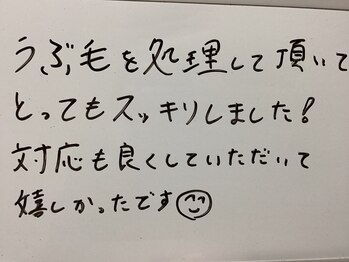 うぶ毛を処理して頂いて
とってもスッキリしました!
対応も良くしていただいて
嬉しかったです